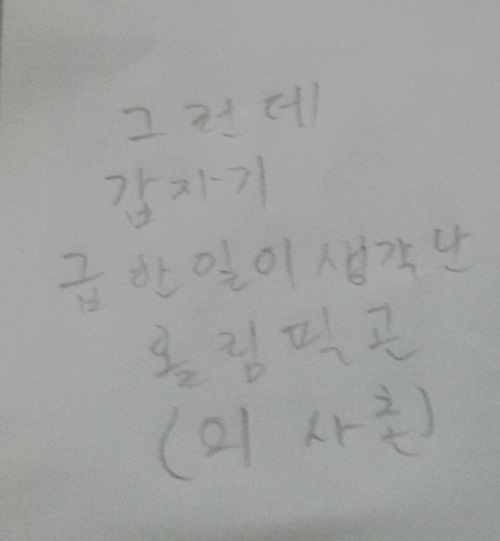 그런데
갑자기
급한일이생각난
홀림픽곤
(외 사촌)